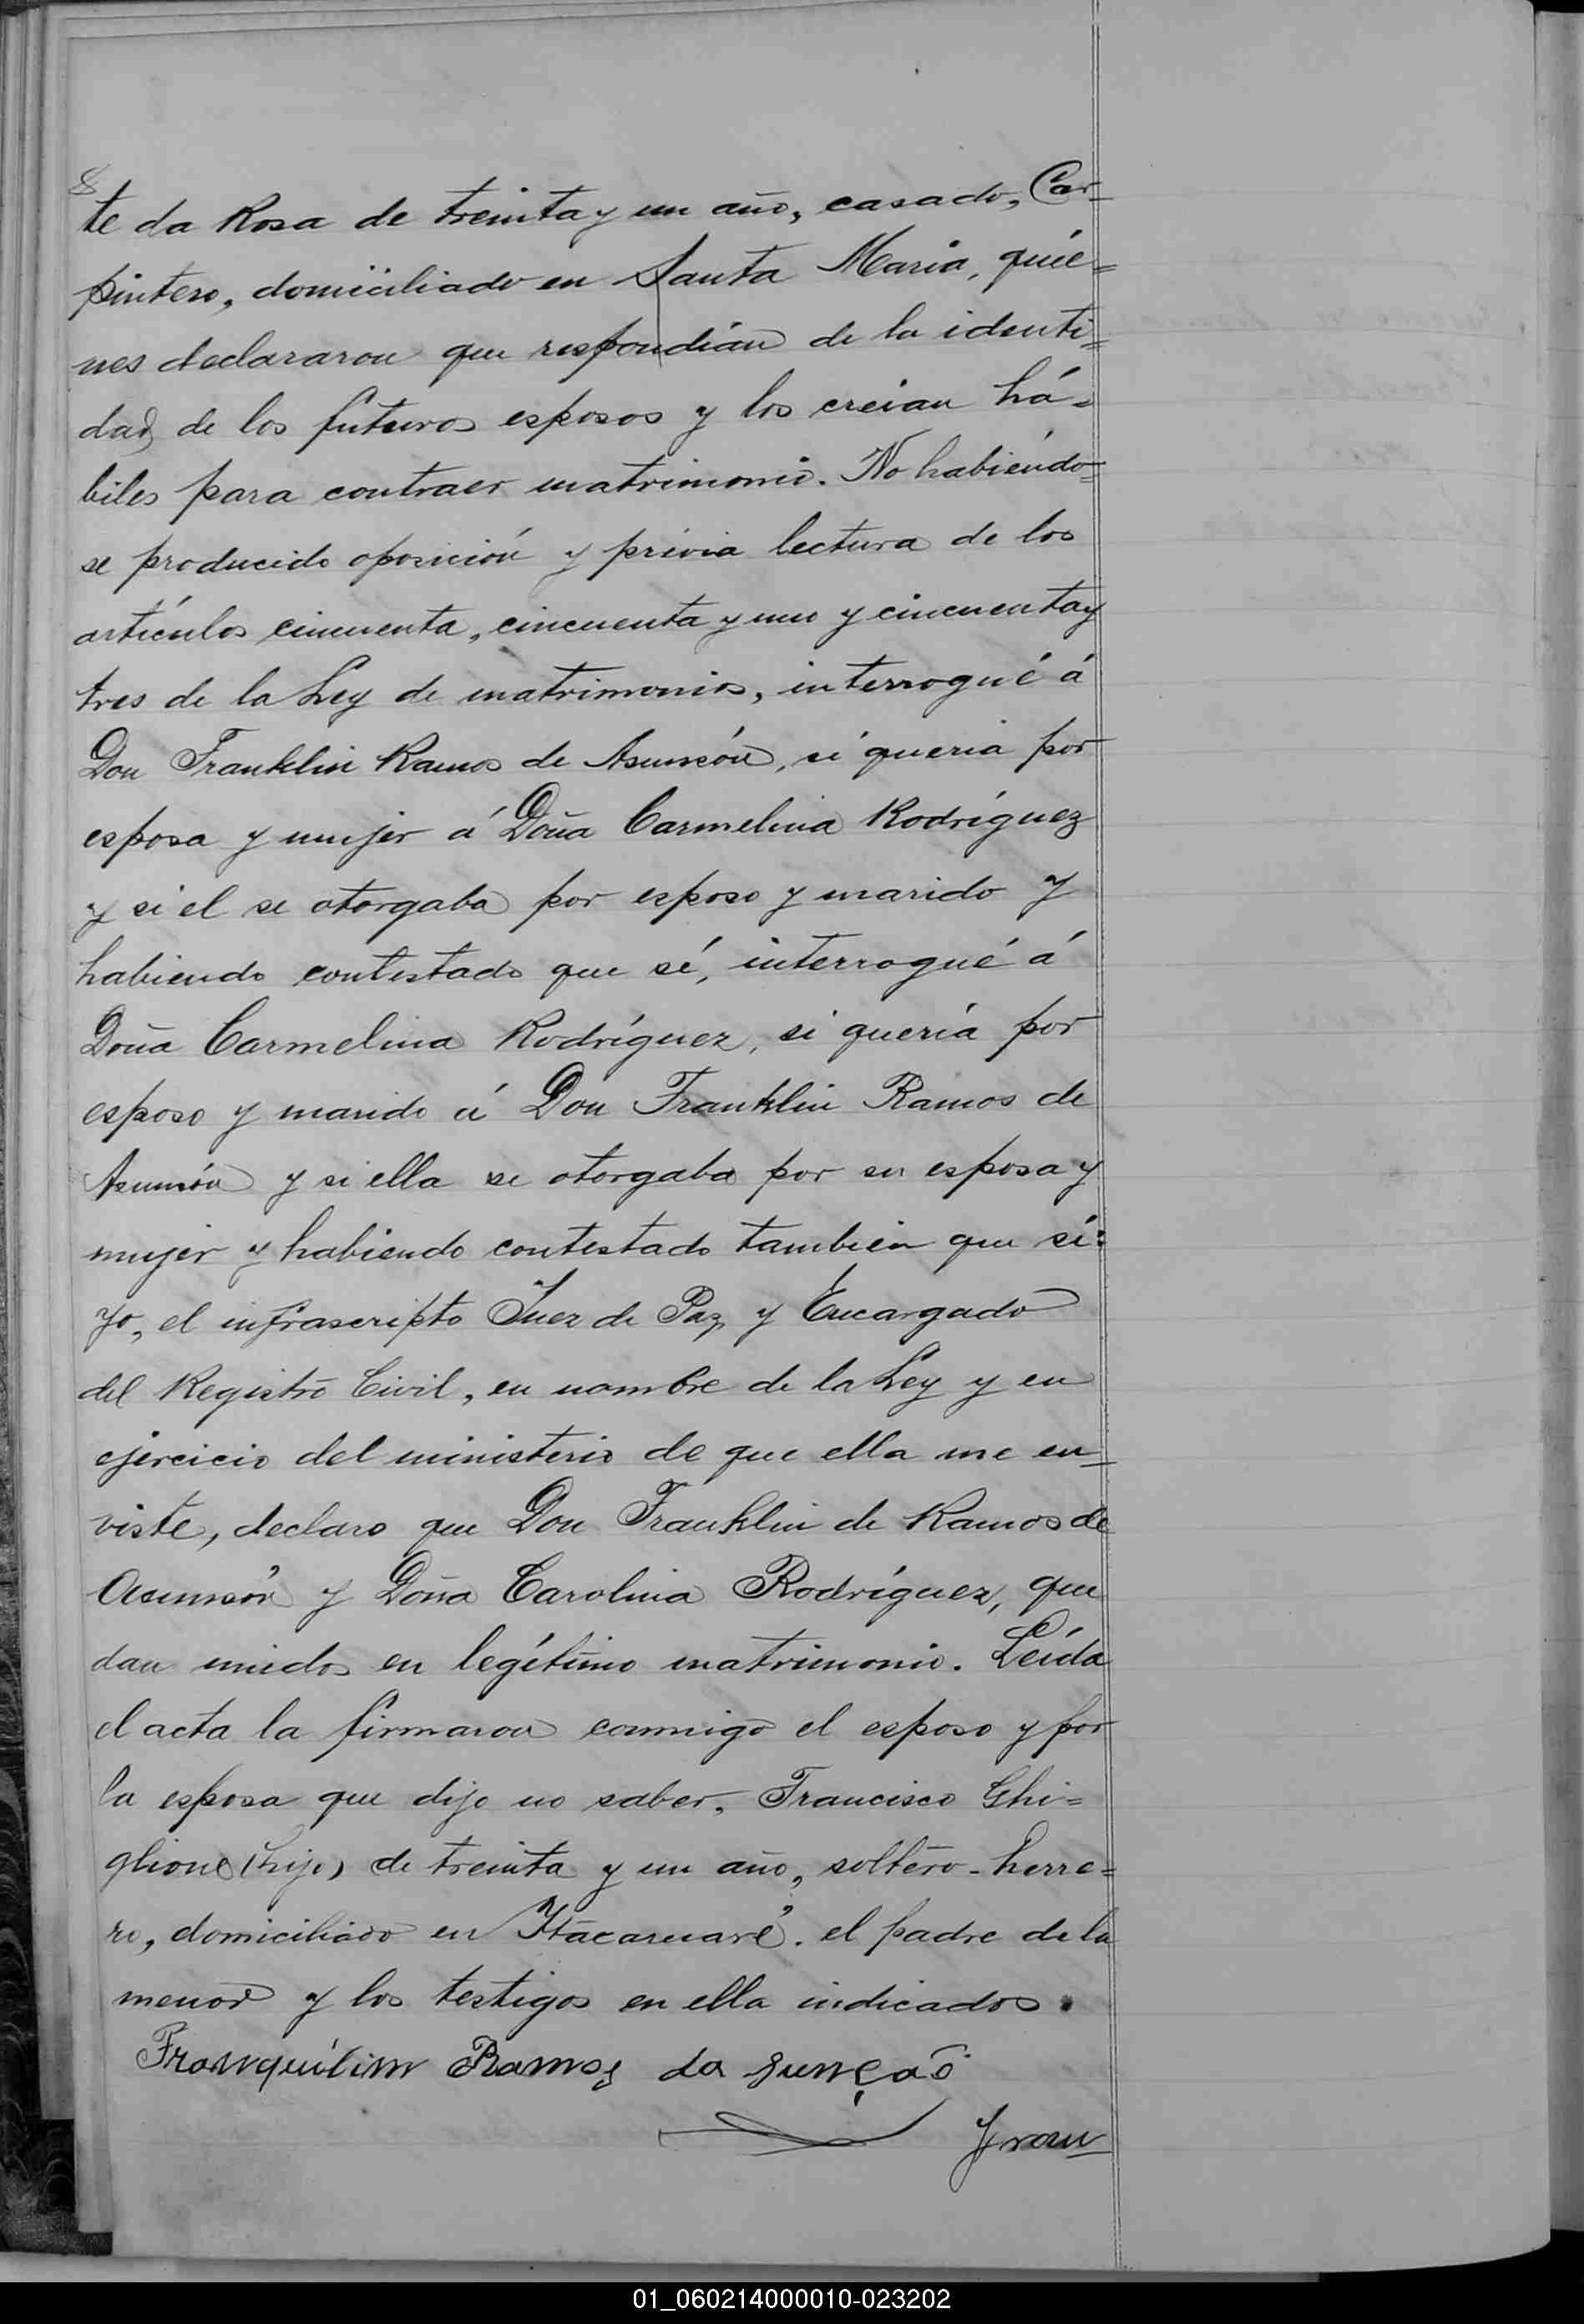 8
te da Rosa de treinta y un año, casado, Car-
pintero, domiciliado en Santa Maria, quie=
nes declararon que respondían de la identi=
dad de los futuros esposos y los creian há=
biles para contraer matrimonio. No habiéndo=
se producido oposición y prévia lectura de los
artículos cincuenta, cincuenta y uno y cincuenta y
tres de la Ley de matrimonios, interrogué á
Don Franklin Ramos de Asunsón, si queria por
esposa y mujer á Doña Carmelina Rodríguez
y si el se otorgaba por esposo y marido y
habiendo contestado que sí, interrogué á
Doña Carmelina Rodríguez, si quería por
esposo y marido á Don Franklin Ramos de
Asunsón y si ella se otorgaba por su esposa y
mujer y habiendo contestado tambien que sí:
Yo, el infrascripto Juez de Paz y Encargado
del Registro Civil, en nombre de la Ley y en
ejercicio del ministerio de que ella me en-
viste, declaro que Don Franklin de Ramos de
Asunsón y Doña Carolina Rodríguez, que
dan unidos en legítimo matrimonio. Leída
el acta la firmaron conmigo el esposo y por
la esposa que dijo no saber, Francisco Ghi=
glione (hijo) de treinta y un año, soltero-herre=
ro, domiciliado en Itacaruaré, el padre de la
menor y los testigos en ella indicados.
Franquilim Ramos da sunção
Fran
01_060214000010-023202